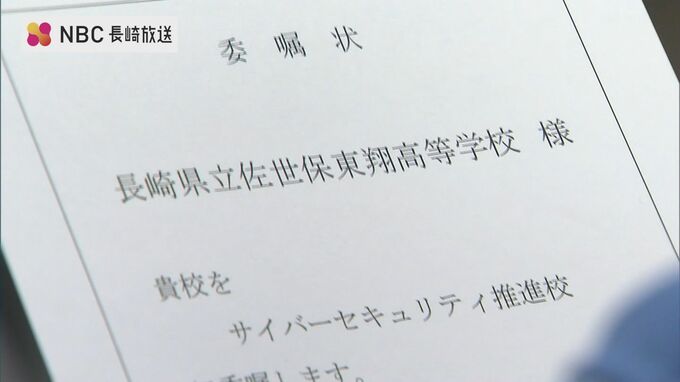 NBC 長崎放送
委嘱状
長崎県立佐世保東翔高等学校 様
貴校を
サイバーセキュリティ推進校
に委嘱します。